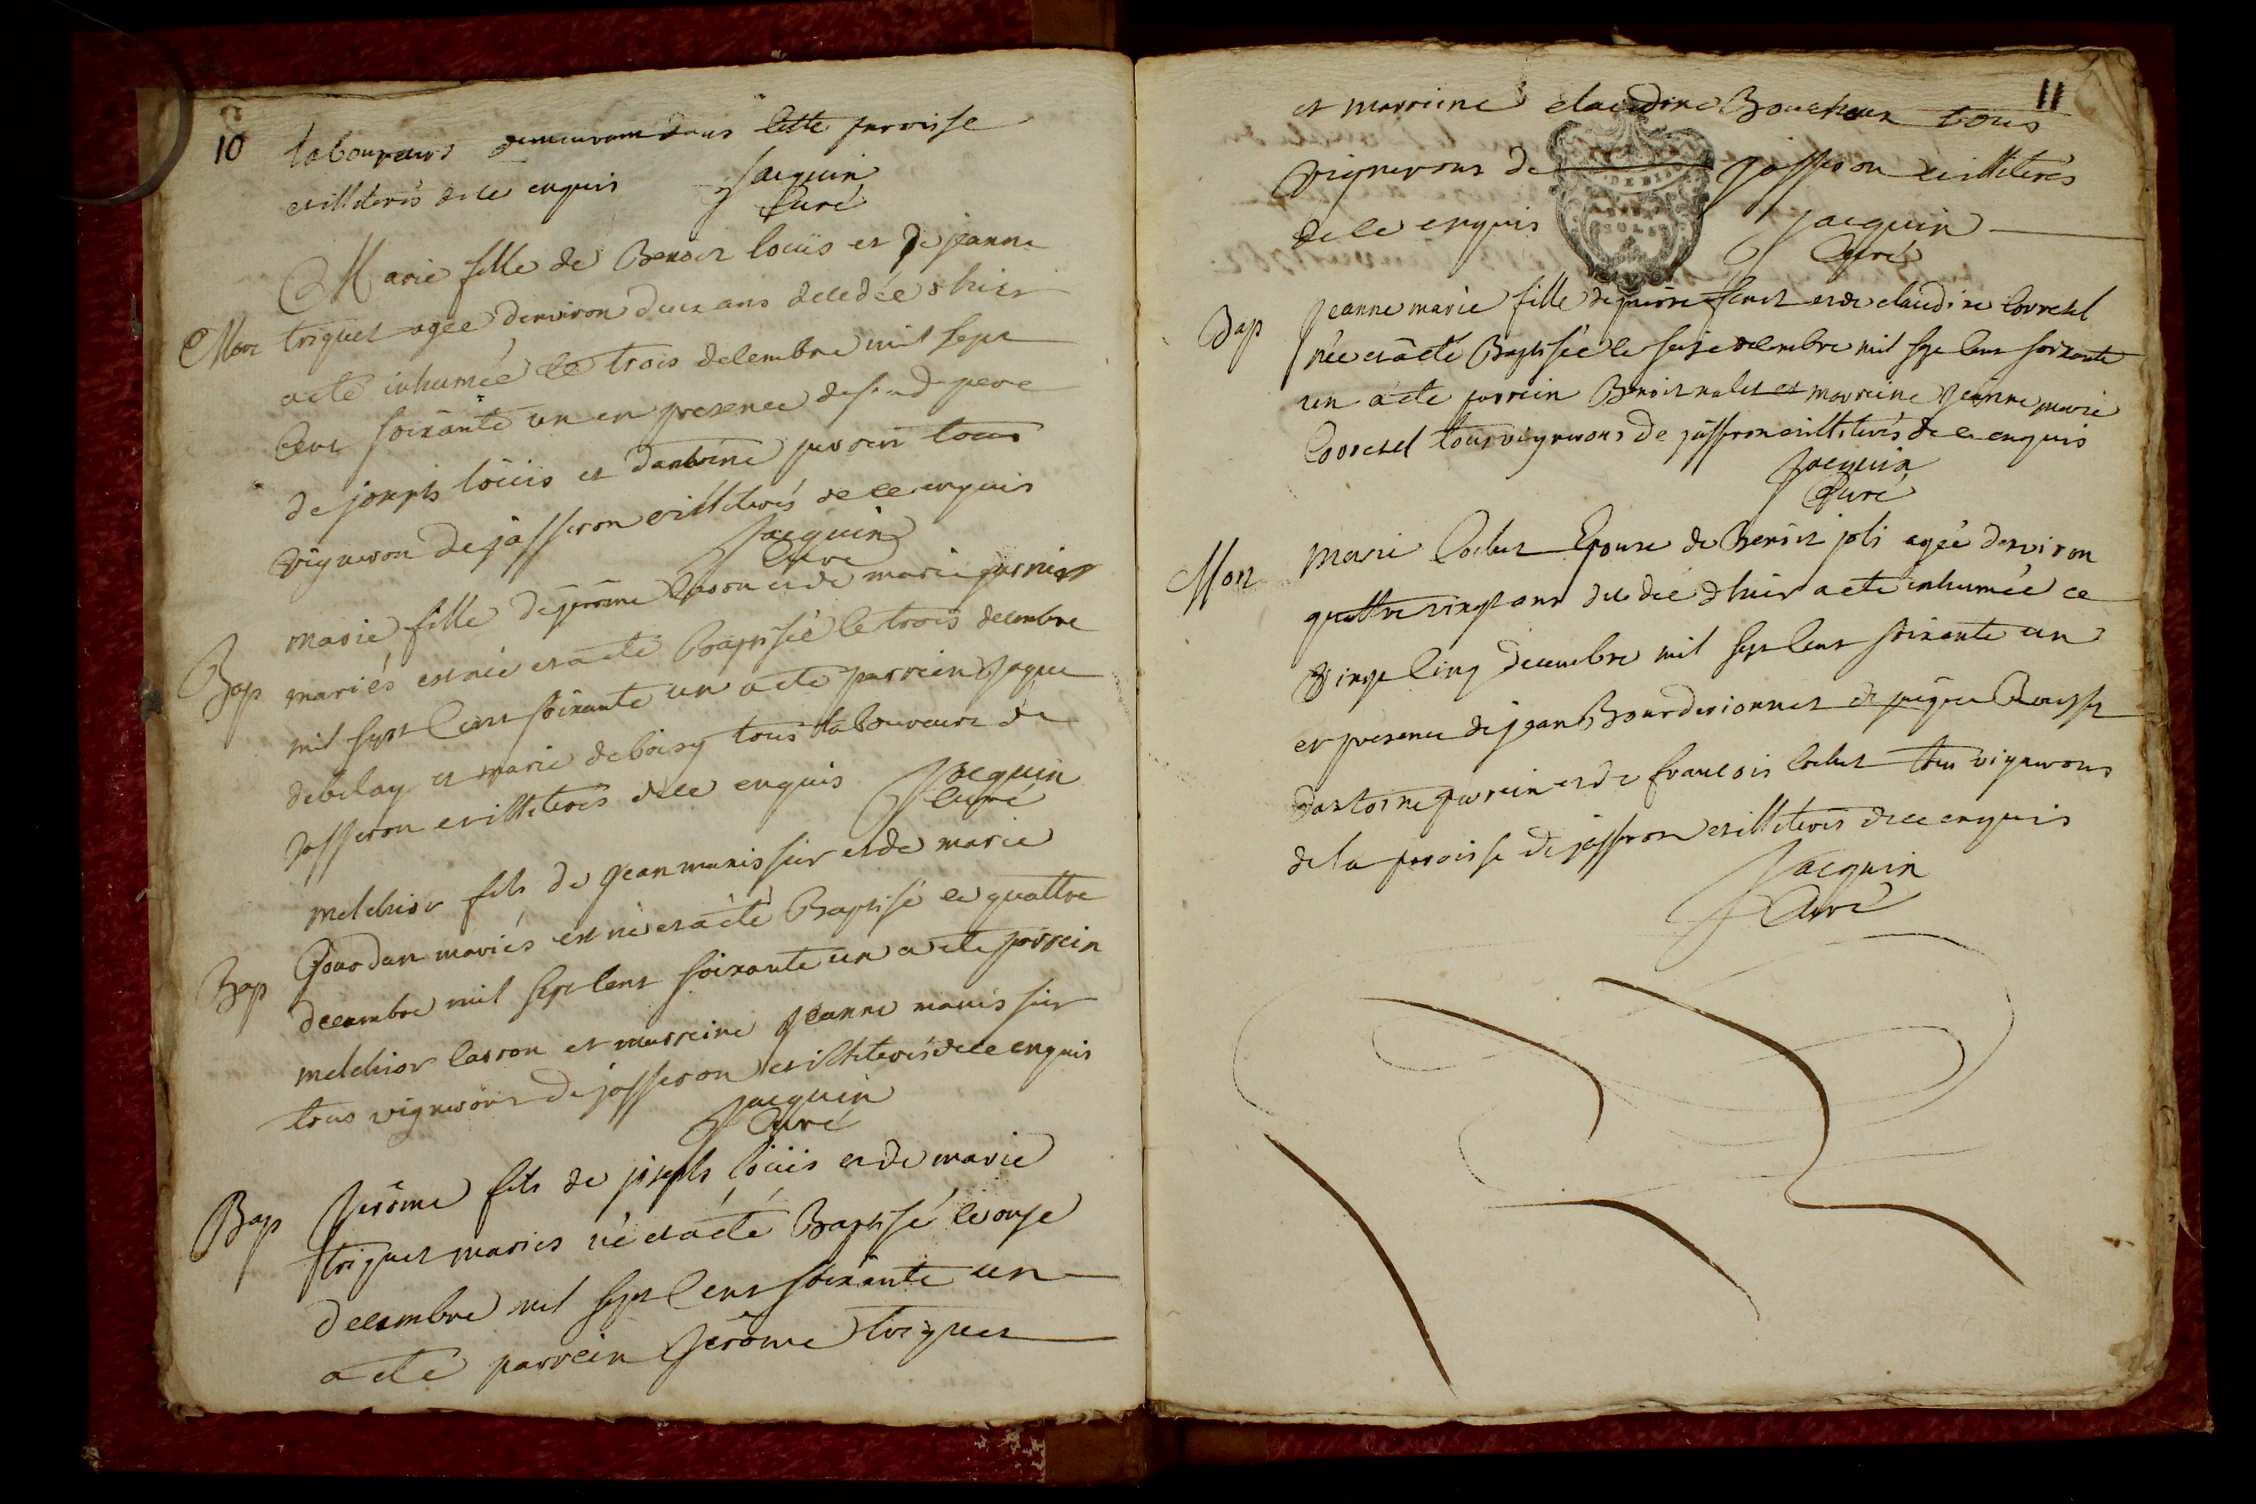 10
laboureurs demeurant dans cette parroisse
et illiterés de ce enquis Jacquin
Curé
Mor
Marie fille de Benoit louis et de jeanne
triquet agée denviron deux ans decedée d'hier
a eté inhumée le trois decembre mil sept
cent soixante un en presence de son d. pere
de joseph louis et dantoine perrin tous
vigneron de jasseron et illiterés de ce enquis
Jacquin
Curé
Bap
marie fille de jerome et de marie
mariés est née et a eté Baptisée le trois decembre
mil sept cent soixante un a eté parrein Jaque
debelay et marie deboisy tous laboureurs de
Jasseron et illiterés de ce enquis Jacquin
Curé
Bap
melchior fils de jean manissier et de marie
Gourdan mariés est né et a eté Baptisé le quattre
decembre mil sept cent soixante un a eté parrein
melchior carron et marreine jeanne manissier
tous vignerons de jasseron et illiterés de ce enquis
Jacquin
Curé
Bap
Jerôme fils de joseph louis et de marie
triquet mariés né et a eté Baptisé le onze
decembre mil sept cent soixante un
a eté parrein Jerôme triquet
11
et marreine claudine tous
vignerons de Jasseron et illiterés
de ce enquis Jacquin
Curé
Bap
jeanne marie fille de pierre et de claudine
née et a eté Baptisée le seize decembre mil sept cent soixante
un a eté parrein Benoit et marreine jeanne marie
tous vignerons de jasseron et illiterés de ce enquis
Jacquin
Curé
Mor
marie Epouse de Benoit joli agée denviron
quattre vingt ans decedée d'hier a eté inhumée ce
vingt cinq decembre mil sept cent soixante un
en presence de jean Bourderionnet de
dantoine perrin et de francois tous vignerons
de la paroisse de jasseron et illiterés de ce enquis
Jacquin
Curé